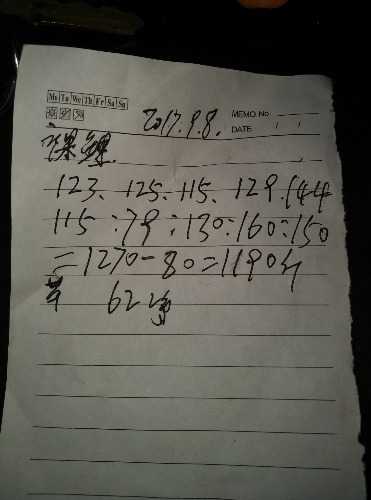 Mo Tu We Th Fr Sa Su
2017.9.8. MEMO No
DATE / /
123、125、115、129.144
115:79:130:160:150
=1270-80=1190斤
622